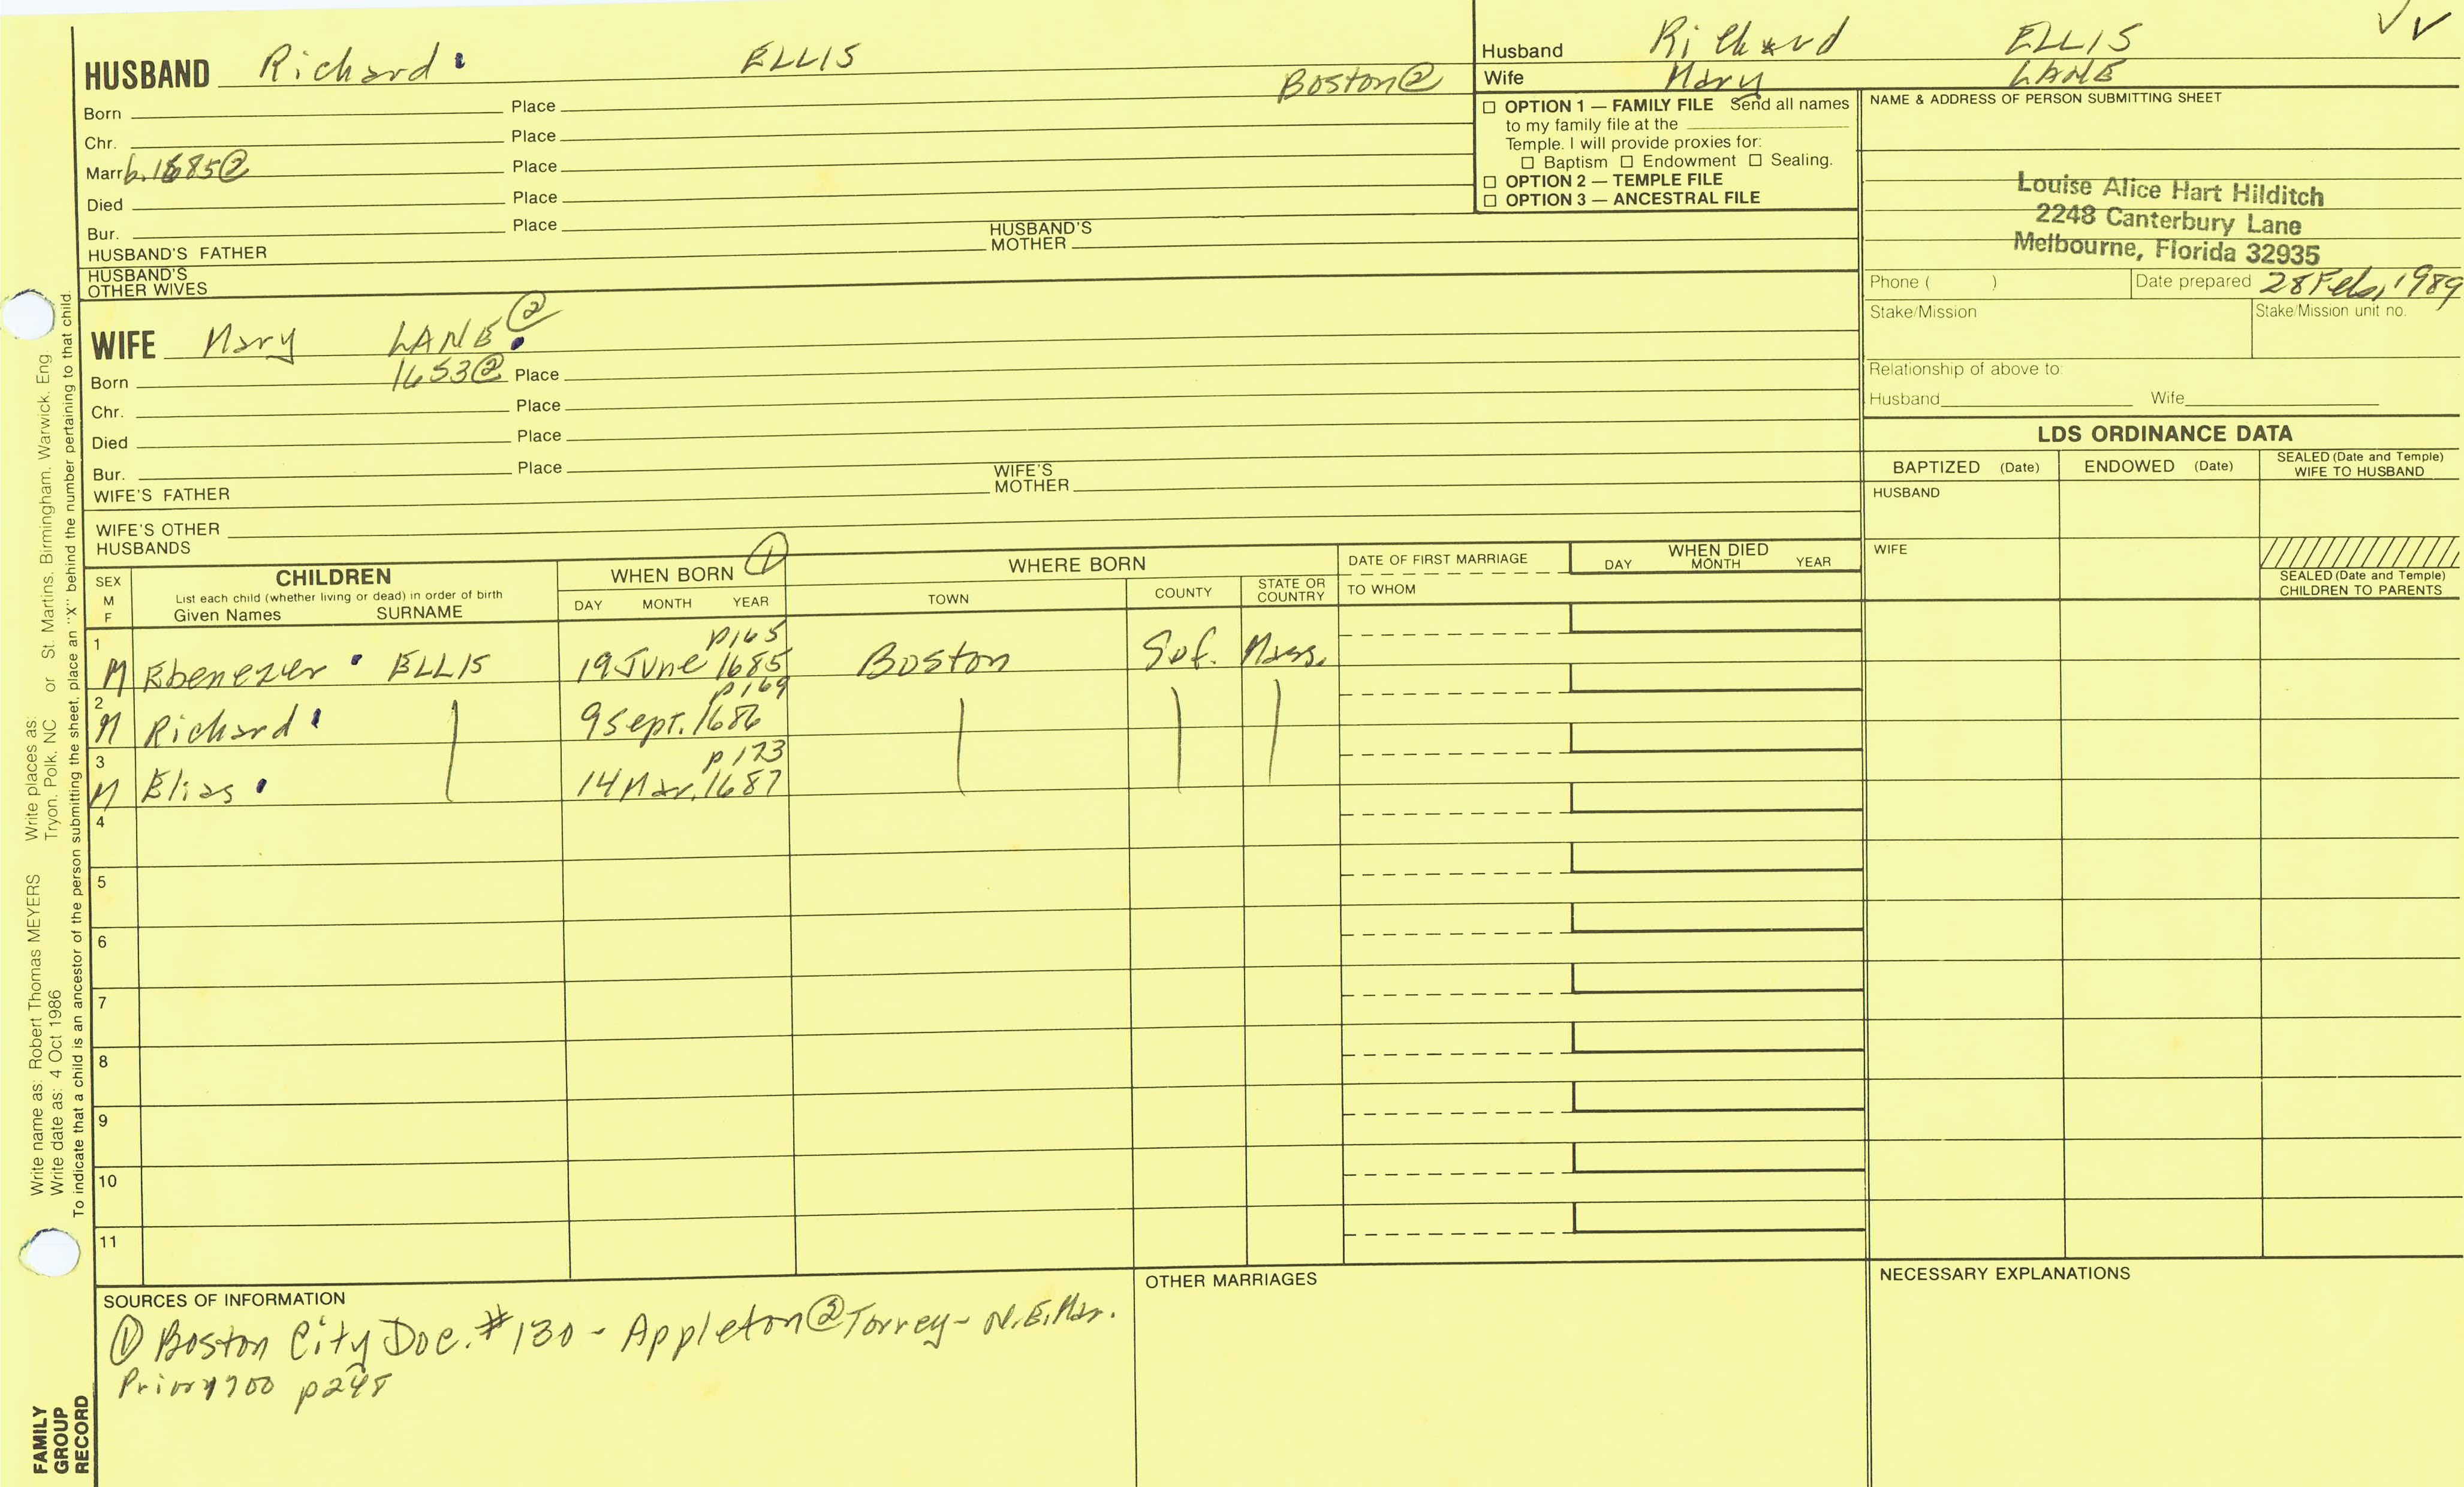 HUSBAND Richard ELLIS Boston ②
Born Place
Chr. Place
Marr b. 1685 ② Place
Died Place
Bur. Place
HUSBAND'S FATHER HUSBAND'S MOTHER
HUSBAND'S OTHER WIVES
Husband Richard ELLIS
Wife Mary LANE
☐ OPTION 1 — FAMILY FILE Send all names
to my family file at the
Temple. I will provide proxies for:
☐ Baptism ☐ Endowment ☐ Sealing.
☐ OPTION 2 — TEMPLE FILE
☐ OPTION 3 — ANCESTRAL FILE
NAME & ADDRESS OF PERSON SUBMITTING SHEET
Louise Alice Hart Hilditch
2248 Canterbury Lane
Melbourne, Florida 32935
Phone ( ) Date prepared 28 Feb, 1989
Stake/Mission Stake/Mission unit no.
Relationship of above to:
Husband Wife
WIFE Mary LANE ②
Born 1653 ② Place
Chr. Place
Died Place
Bur. Place
WIFE'S FATHER WIFE'S MOTHER
WIFE'S OTHER HUSBANDS
LDS ORDINANCE DATA
BAPTIZED (Date) ENDOWED (Date) SEALED (Date and Temple) WIFE TO HUSBAND
HUSBAND
WIFE
SEALED (Date and Temple) CHILDREN TO PARENTS
SEX M F
CHILDREN
List each child (whether living or dead) in order of birth
Given Names SURNAME
WHEN BORN ①
DAY MONTH YEAR
WHERE BORN
TOWN COUNTY STATE OR COUNTRY
DATE OF FIRST MARRIAGE
TO WHOM
WHEN DIED
DAY MONTH YEAR
1 p165
M Ebenezer ELLIS 19 June 1685 Boston Suf. Mass.
2 p169
M Richard 9 Sept. 1686
3 p173
M Elias 14 Mar. 1687
4
5
6
7
8
9
10
11
SOURCES OF INFORMATION
① Boston City Doc. #130 - Appleton ② Torrey - N.E. Mar.
Prior 1700 p248
OTHER MARRIAGES
NECESSARY EXPLANATIONS
FAMILY
GROUP
RECORD
Write name as: Robert Thomas MEYERS Write places as:
Write date as: 4 Oct 1986 Tryon, Polk, NC or St. Martins, Birmingham, Warwick, Eng
To indicate that a child is an ancestor of the person submitting the sheet, place an "X" behind the number pertaining to that child.